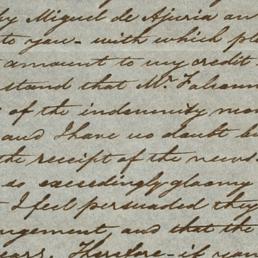 by Miguel de Ajuria an
to you - with which ple
amount to my credit.
stand that Mr. Falconn
of the indemnity mon
and I have no doubt bu
the receipt of the news.
as exceedingly gloomy
I feel persuaded they
ngement, and that the
ears. Therefore - if you